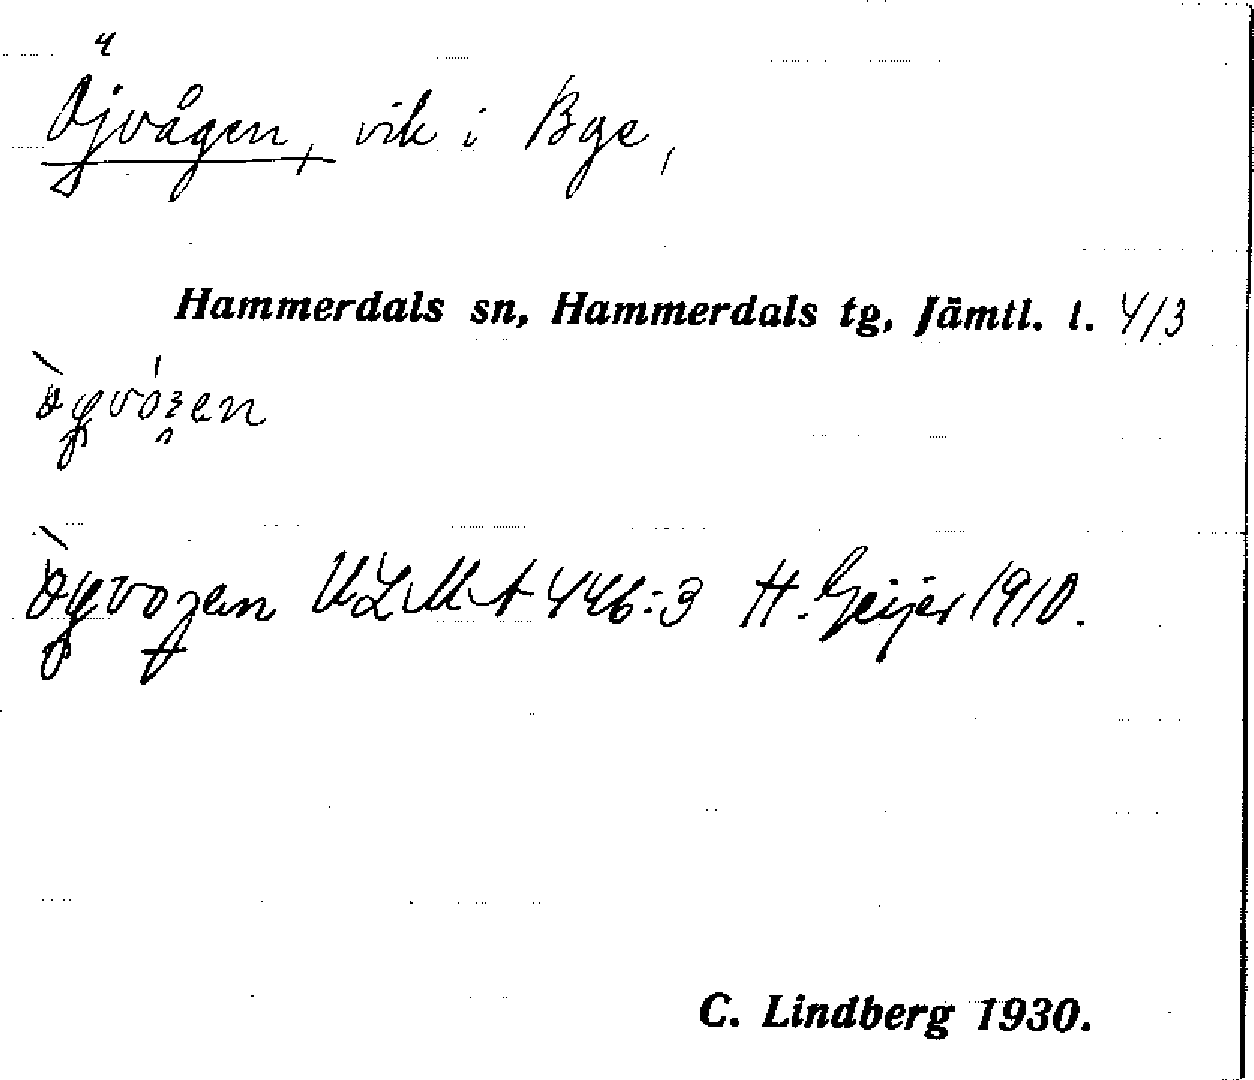 Öjvågen, vik i Bye,
Hammerdals sn, Hammerdals tg, Jämtl. l. 4/3
ULMA 446:3 H. Geijer 1910.
C. Lindberg 1930.